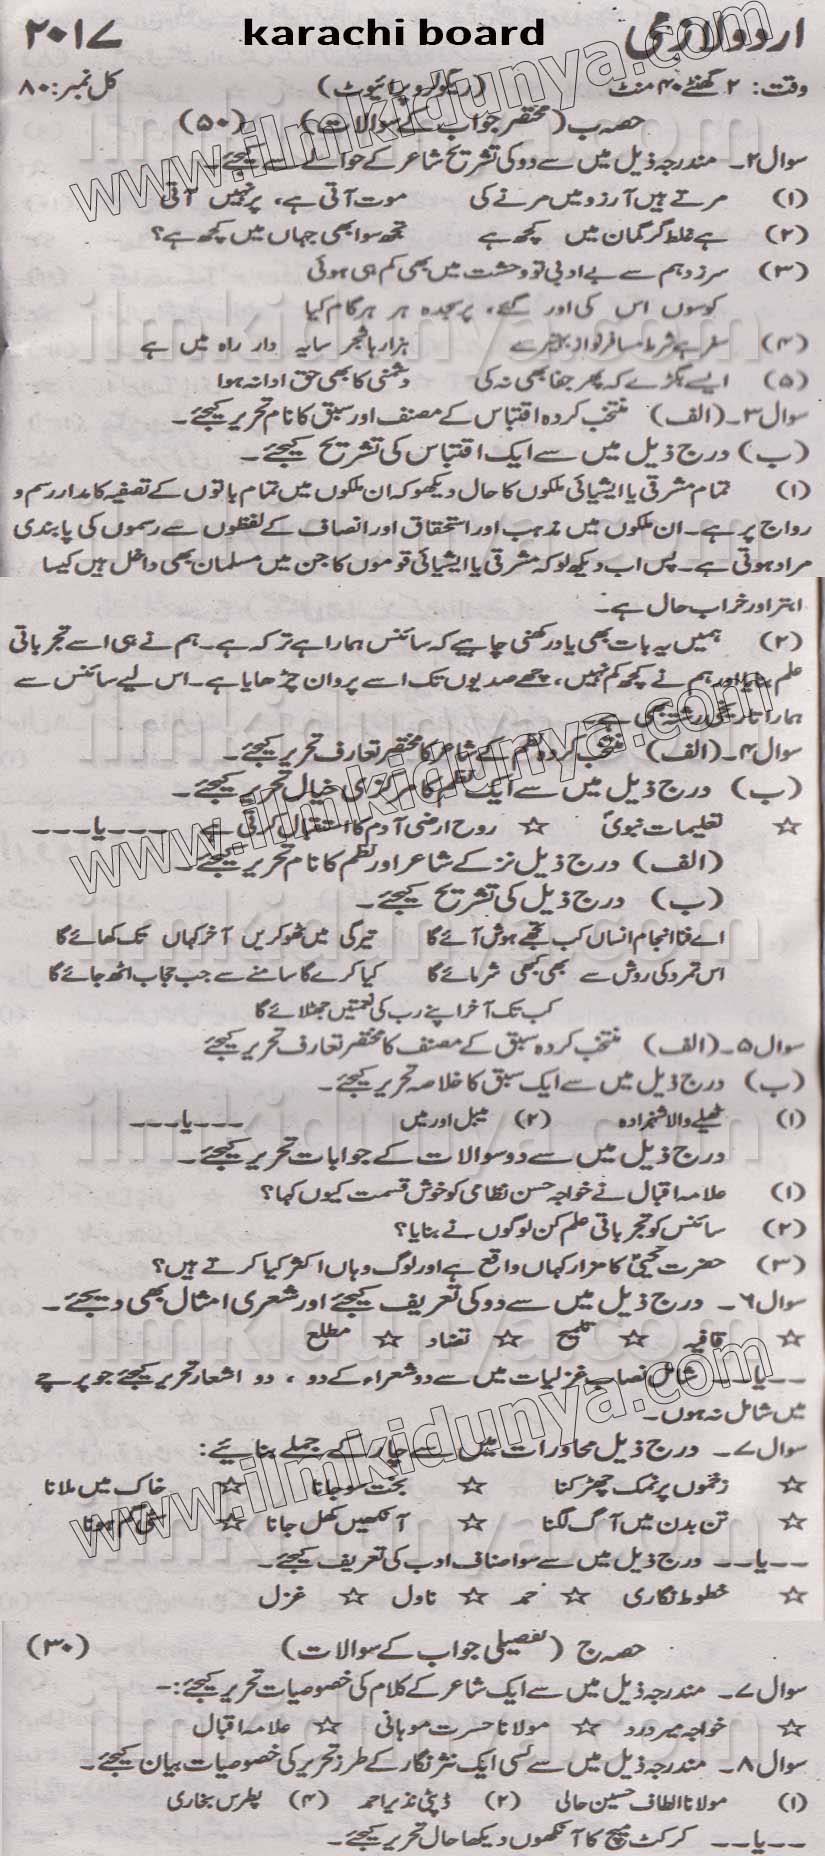 اردو لازمی karachi board ۲۰۱۷
وقت: ۲ گھنٹے ۴۰ منٹ (ریگولر و پرائیوٹ) کل نمبر: ۸۰
حصہ ب (مختصر جواب کے سوالات) (۵۰)
سوال ۲۔ مندرجہ ذیل میں سے دو کی تشریح شاعر کے حوالے سے کیجئے۔
(۱) مرتے ہیں آرزو میں مرنے کی موت آتی ہے، پر نہیں آتی
(۲) ہے غلط گر گمان میں کچھ ہے تجھ سوا بھی جہاں میں کچھ ہے؟
(۳) سرزد ہم سے بے ادبی تو وحشت میں بھی کم ہی ہوئی
کوسوں اس کی اور گئے، پر سجدہ ہر ہر گام کیا
(۴) سفر ہے شرط مسافر نواز بہتیرے ہزارہا شجر سایہ دار راہ میں ہے
(۵) ایسے بگڑے کہ پھر جفا بھی نہ کی دشمنی کا بھی حق ادا نہ ہوا
سوال ۳۔ (الف) منتخب کردہ اقتباس کے مصنف اور سبق کا نام تحریر کیجئے۔
(ب) درج ذیل میں سے ایک اقتباس کی تشریح کیجئے۔
(۱) تمام مشرقی یا ایشیائی ملکوں کا حال دیکھو کہ ان ملکوں میں تمام باتوں کے تصفیہ کا مدار رسم و
رواج پر ہے۔ ان ملکوں میں مذہب اور استحقاق اور انصاف کے لفظوں سے رسموں کی پابندی
مراد ہوتی ہے۔ پس اب دیکھ لو کہ مشرقی یا ایشیائی قوموں کا جن میں مسلمان بھی داخل ہیں کیسا
ابتر اور خراب حال ہے۔
(۲) ہمیں یہ بات بھی یاد رکھنی چاہیے کہ سائنس ہمارا ہے ترکہ ہے۔ ہم نے ہی اسے تجرباتی
علم بنایا اور ہم نے کچھ کم نہیں، چھے صدیوں تک اسے پروان چڑھایا ہے۔ اس لیے سائنس سے
ہمارا تاریخی رشتہ بھی ہے۔
سوال ۴۔ (الف) منتخب کردہ نظم کے شاعر کا مختصر تعارف تحریر کیجئے۔
(ب) درج ذیل میں سے ایک نظم کا مرکزی خیال تحریر کیجئے۔
☆ تعلیمات نبویؐ ☆ روح ارضی آدم کا استقبال کرتی ہے ۔۔۔یا۔۔۔
(الف) درج ذیل نز کے شاعر اور نظم کا نام تحریر کیجئے۔
(ب) درج ذیل کی تشریح کیجئے۔
اے فنا انجام انساں کب تجھے ہوش آئے گا تیرگی میں ٹھوکریں آخر کہاں تک کھائے گا
اس تمرد کی روش سے بھی کبھی شرمائے گا کیا کرے گا سامنے سے جب حجاب اٹھ جائے گا
کب تک آخر اپنے رب کی نعمتیں جھٹلائے گا
سوال ۵۔ (الف) منتخب کردہ سبق کے مصنف کا مختصر تعارف تحریر کیجئے
(ب) درج ذیل میں سے ایک سبق کا خلاصہ تحریر کیجئے۔
(۱) ٹھیلے والا شہزادہ (۲) میبل اور میں ۔۔۔یا۔۔۔
درج ذیل میں سے دو سوالات کے جوابات تحریر کیجئے۔
(۱) علامہ اقبال نے خواجہ حسن نظامی کو خوش قسمت کیوں کہا؟
(۲) سائنس کو تجرباتی علم کن لوگوں نے بنایا؟
(۳) حضرت کا مزار کہاں واقع ہے اور لوگ وہاں اکثر کیا کرتے ہیں؟
سوال ۶۔ درج ذیل میں سے دو کی تعریف کیجئے اور شعری امثال بھی دیجئے۔
☆ قافیہ ☆ تلمیح ☆ تضاد ☆ مطلع
۔۔یا۔۔ شامل نصاب غزلیات میں سے دو شعراء کے دو، دو اشعار تحریر کیجئے جو پرچے
میں شامل نہ ہوں۔
سوال ۷۔ درج ذیل محاورات میں سے چار کے جملے بنائیے:
☆ زخموں پر نمک چھڑکنا ☆ بخت سو جانا ☆ خاک میں ملانا
☆ تن بدن میں آگ لگنا ☆ آنکھیں کھل جانا ☆ سٹی گم ہونا
۔۔یا۔۔ درج ذیل میں سے سو اصناف ادب کی تعریف کیجئے۔
☆ خطوط نگاری ☆ حمد ☆ ناول ☆ غزل
حصہ ج (تفصیلی جواب کے سوالات) (۳۰)
سوال ۷۔ مندرجہ ذیل میں سے ایک شاعر کے کلام کی خصوصیات تحریر کیجئے:۔
☆ خواجہ میر درد ☆ مولانا حسرت موہانی ☆ علامہ اقبال
سوال ۸۔ مندرجہ ذیل میں سے کسی ایک نثر نگار کے طرز تحریر کی خصوصیات بیان کیجئے۔
(۱) مولانا الطاف حسین حالی (۲) ڈپٹی نذیر احمد (۴) پطرس بخاری
۔۔یا۔۔ کرکٹ میچ کا آنکھوں دیکھا حال تحریر کیجئے۔
www.ilmkidunya.com